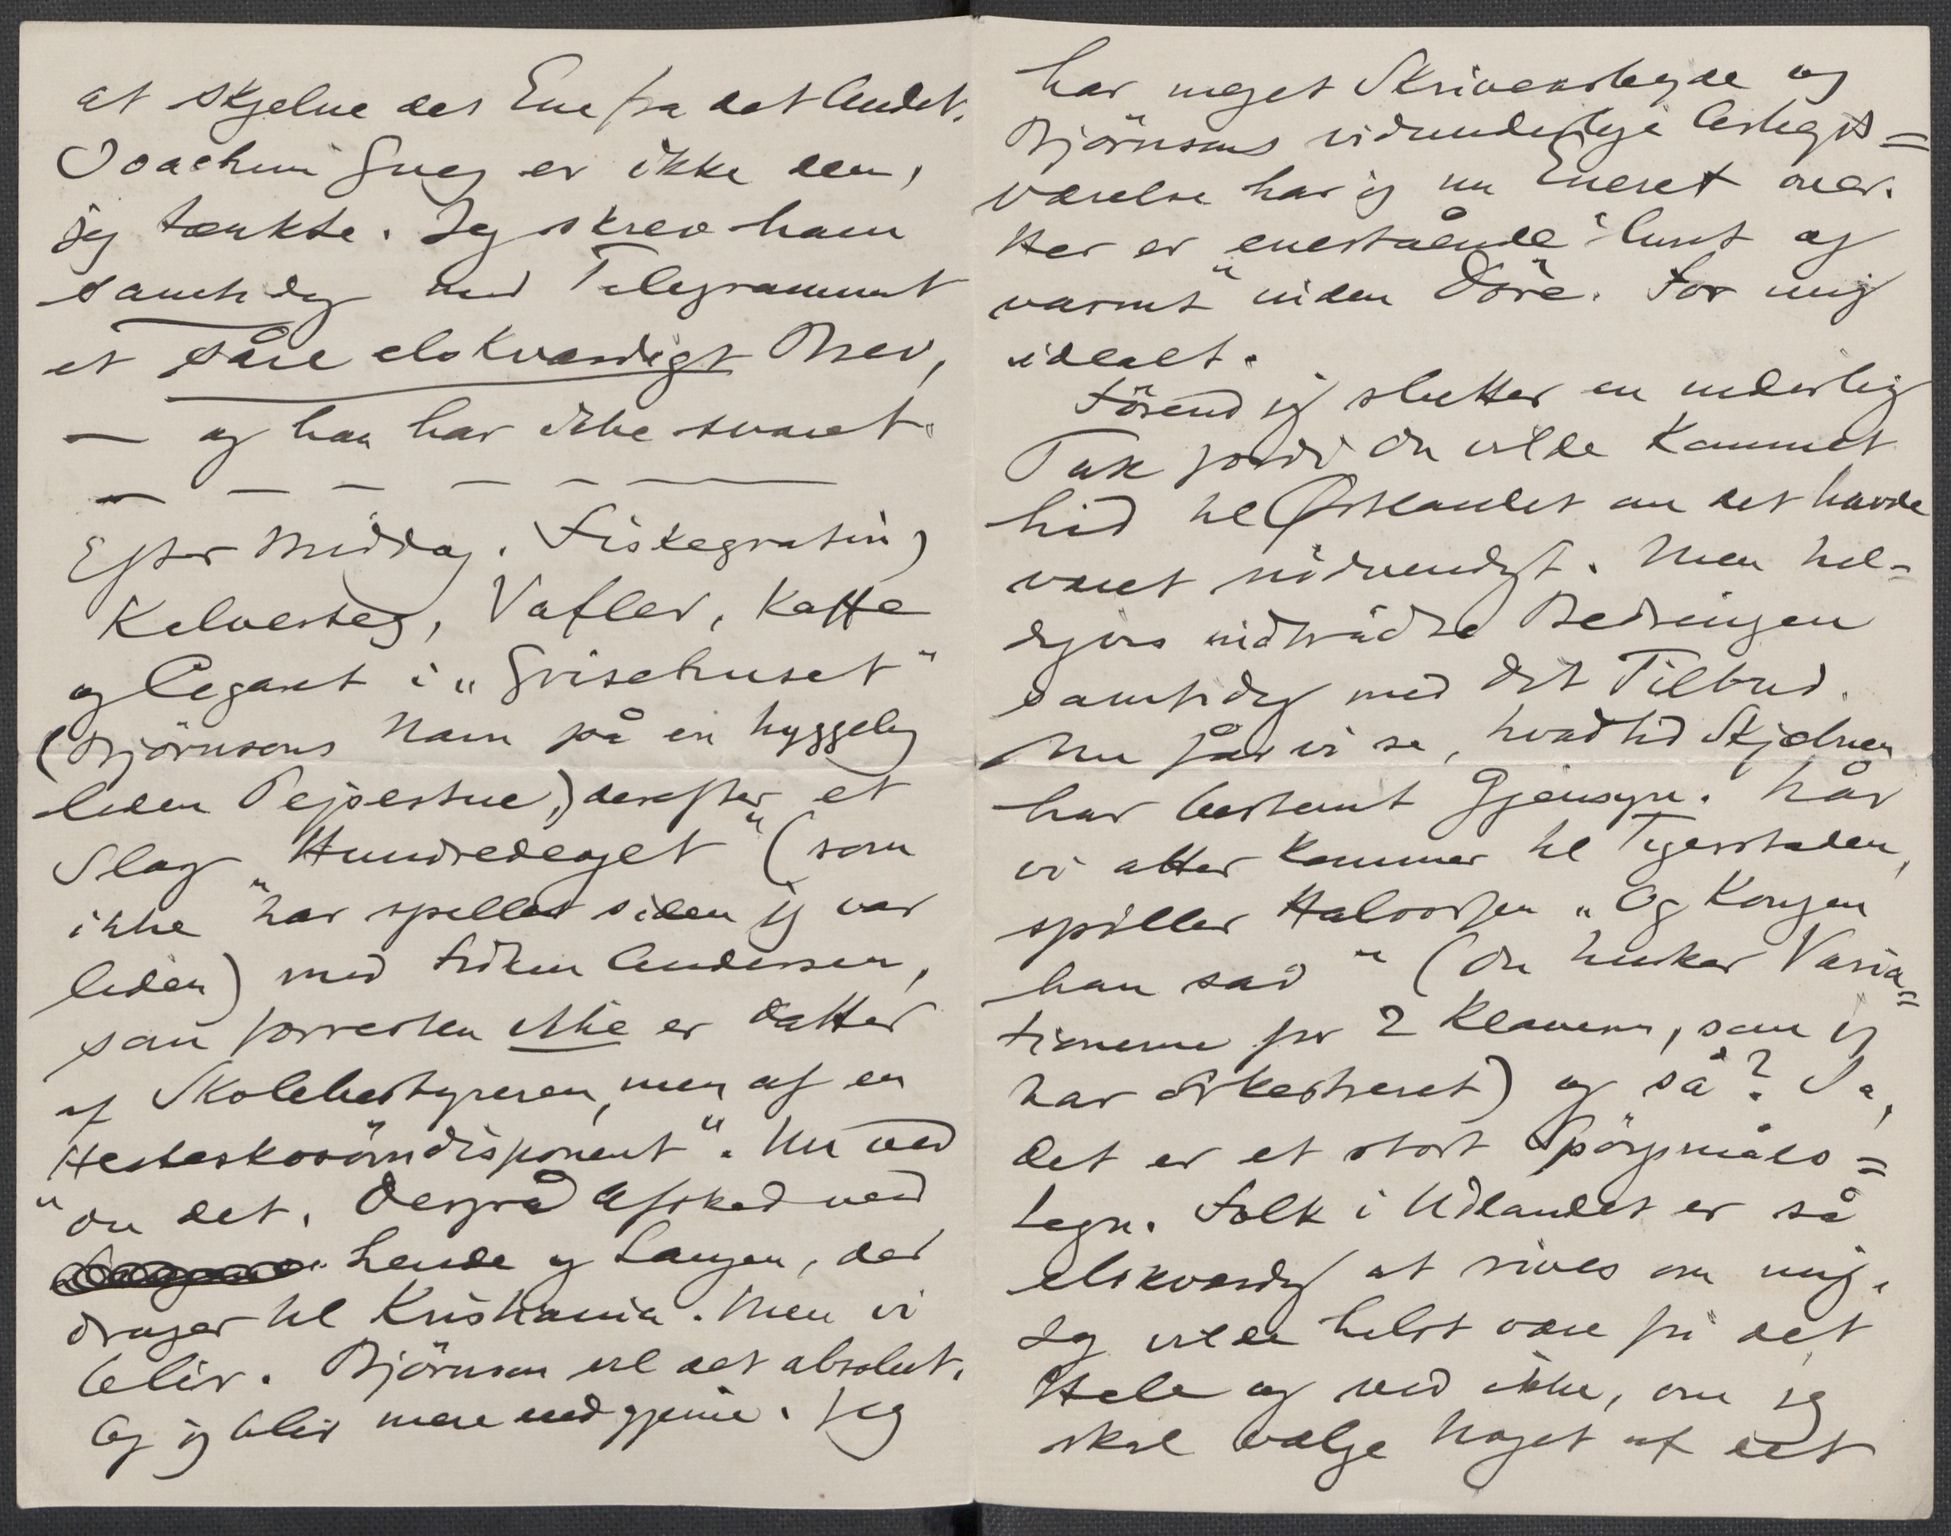 at skjelne det Ene fra det Andet.
Joachim Grieg er ikke den,
jeg tænkte. Jeg skrev ham
samtidig med Telegrammet
et såre elskværdigt Brev,
— og han har ikke svaret.
— — — — — —
Efter Middag. Fiskegratin,
Kalvesteg, Vafler, Kaffe
og Cigaret i „Grisehuset"
(Björnsons Navn på en hyggelig
liden Pejsestue,) derefter et
Slag „Hundredeaget" (som
ikke har spillet siden jeg var
liden) med Fröken Andersen,
som forresten ikke er Datter
af Skolebestyreren, men af en
„Hesteskosömdisponent". Nu ved
du det. Derpå Afsked med
hende og Langen, der
drager til Kristiania. Men vi
blir. Björnson vil det absolut.
Og jeg blir mere end gjerne. Jeg
har meget Skrivearbejde og
Björnsons vidunderlige Arbejds=
værelse har jeg nu Eneret over.
Her er enestående „lunt og
varmt" inden Döre. For mig
idealt.
Förend jeg slutter en inderlig
Tak fordi du vilde kommet
hid til Østlandet om det havde
været nödvendigt. Men hel-
digvis indtrådte Bedringen
samtidig med dit Tilbud.
Nu får vi se, hvad tid Skjæbnen
har bestemt Gjensyn. Når
vi atter kommer til Tigerstaden,
spiller Halvorsen „Og Kongen
han sad" (du husker Varia=
tionerne for 2 Klaverer, som jeg
har orkestreret) og så? Ja,
det er et stort Spörgsmåls=
tegn. Folk i Udlandet er så
elskværdig at rives om mig.
Jeg vilde helst være fri det
Hele og ved ikke, om jeg
skal vælge Noget af det